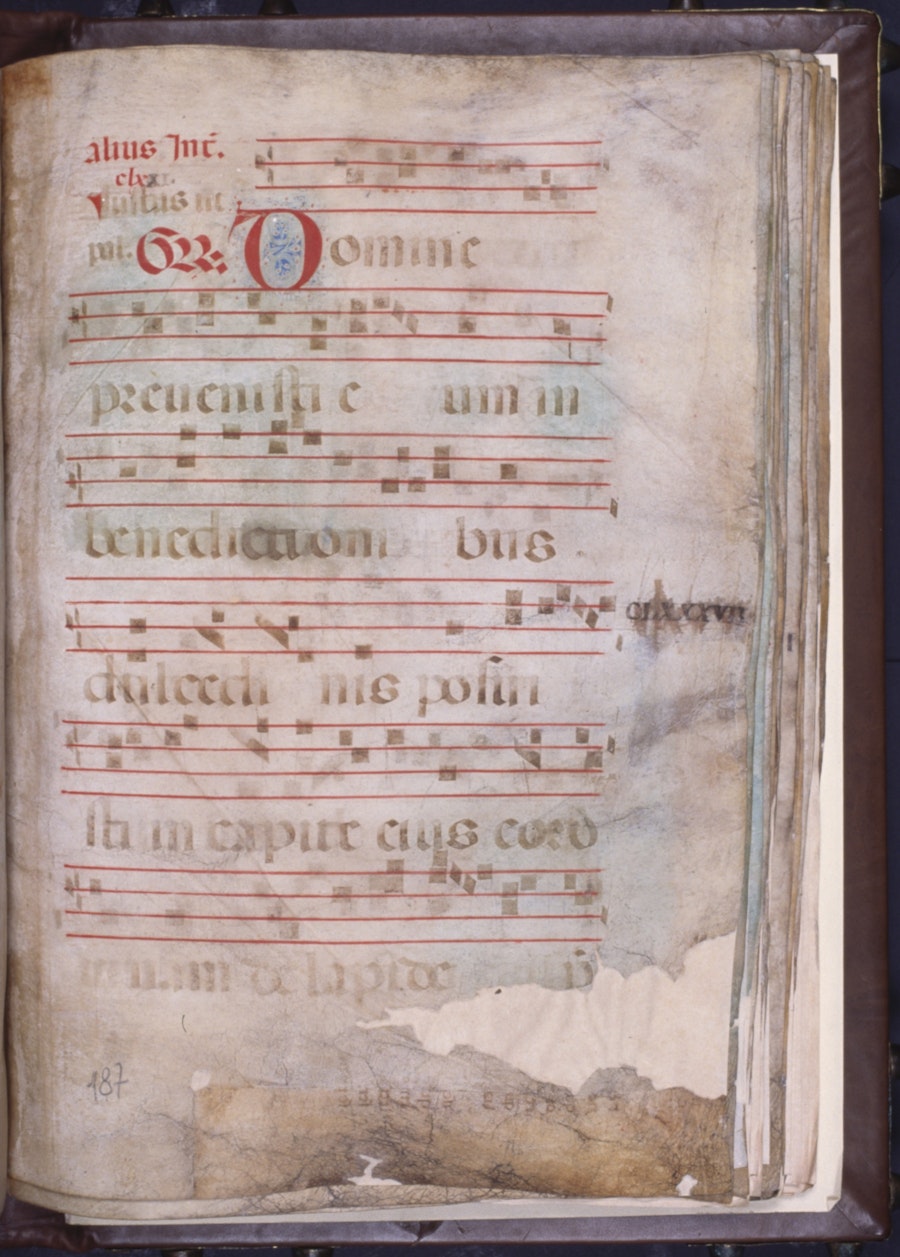 alius Int̄.
clxxi.
Iustus ut
pal. GR. Domine
preuenisti e um in
benediction bus
dulcedi nis posui
sti in capite eius coro
nam de lapide
CLXXXVII
187